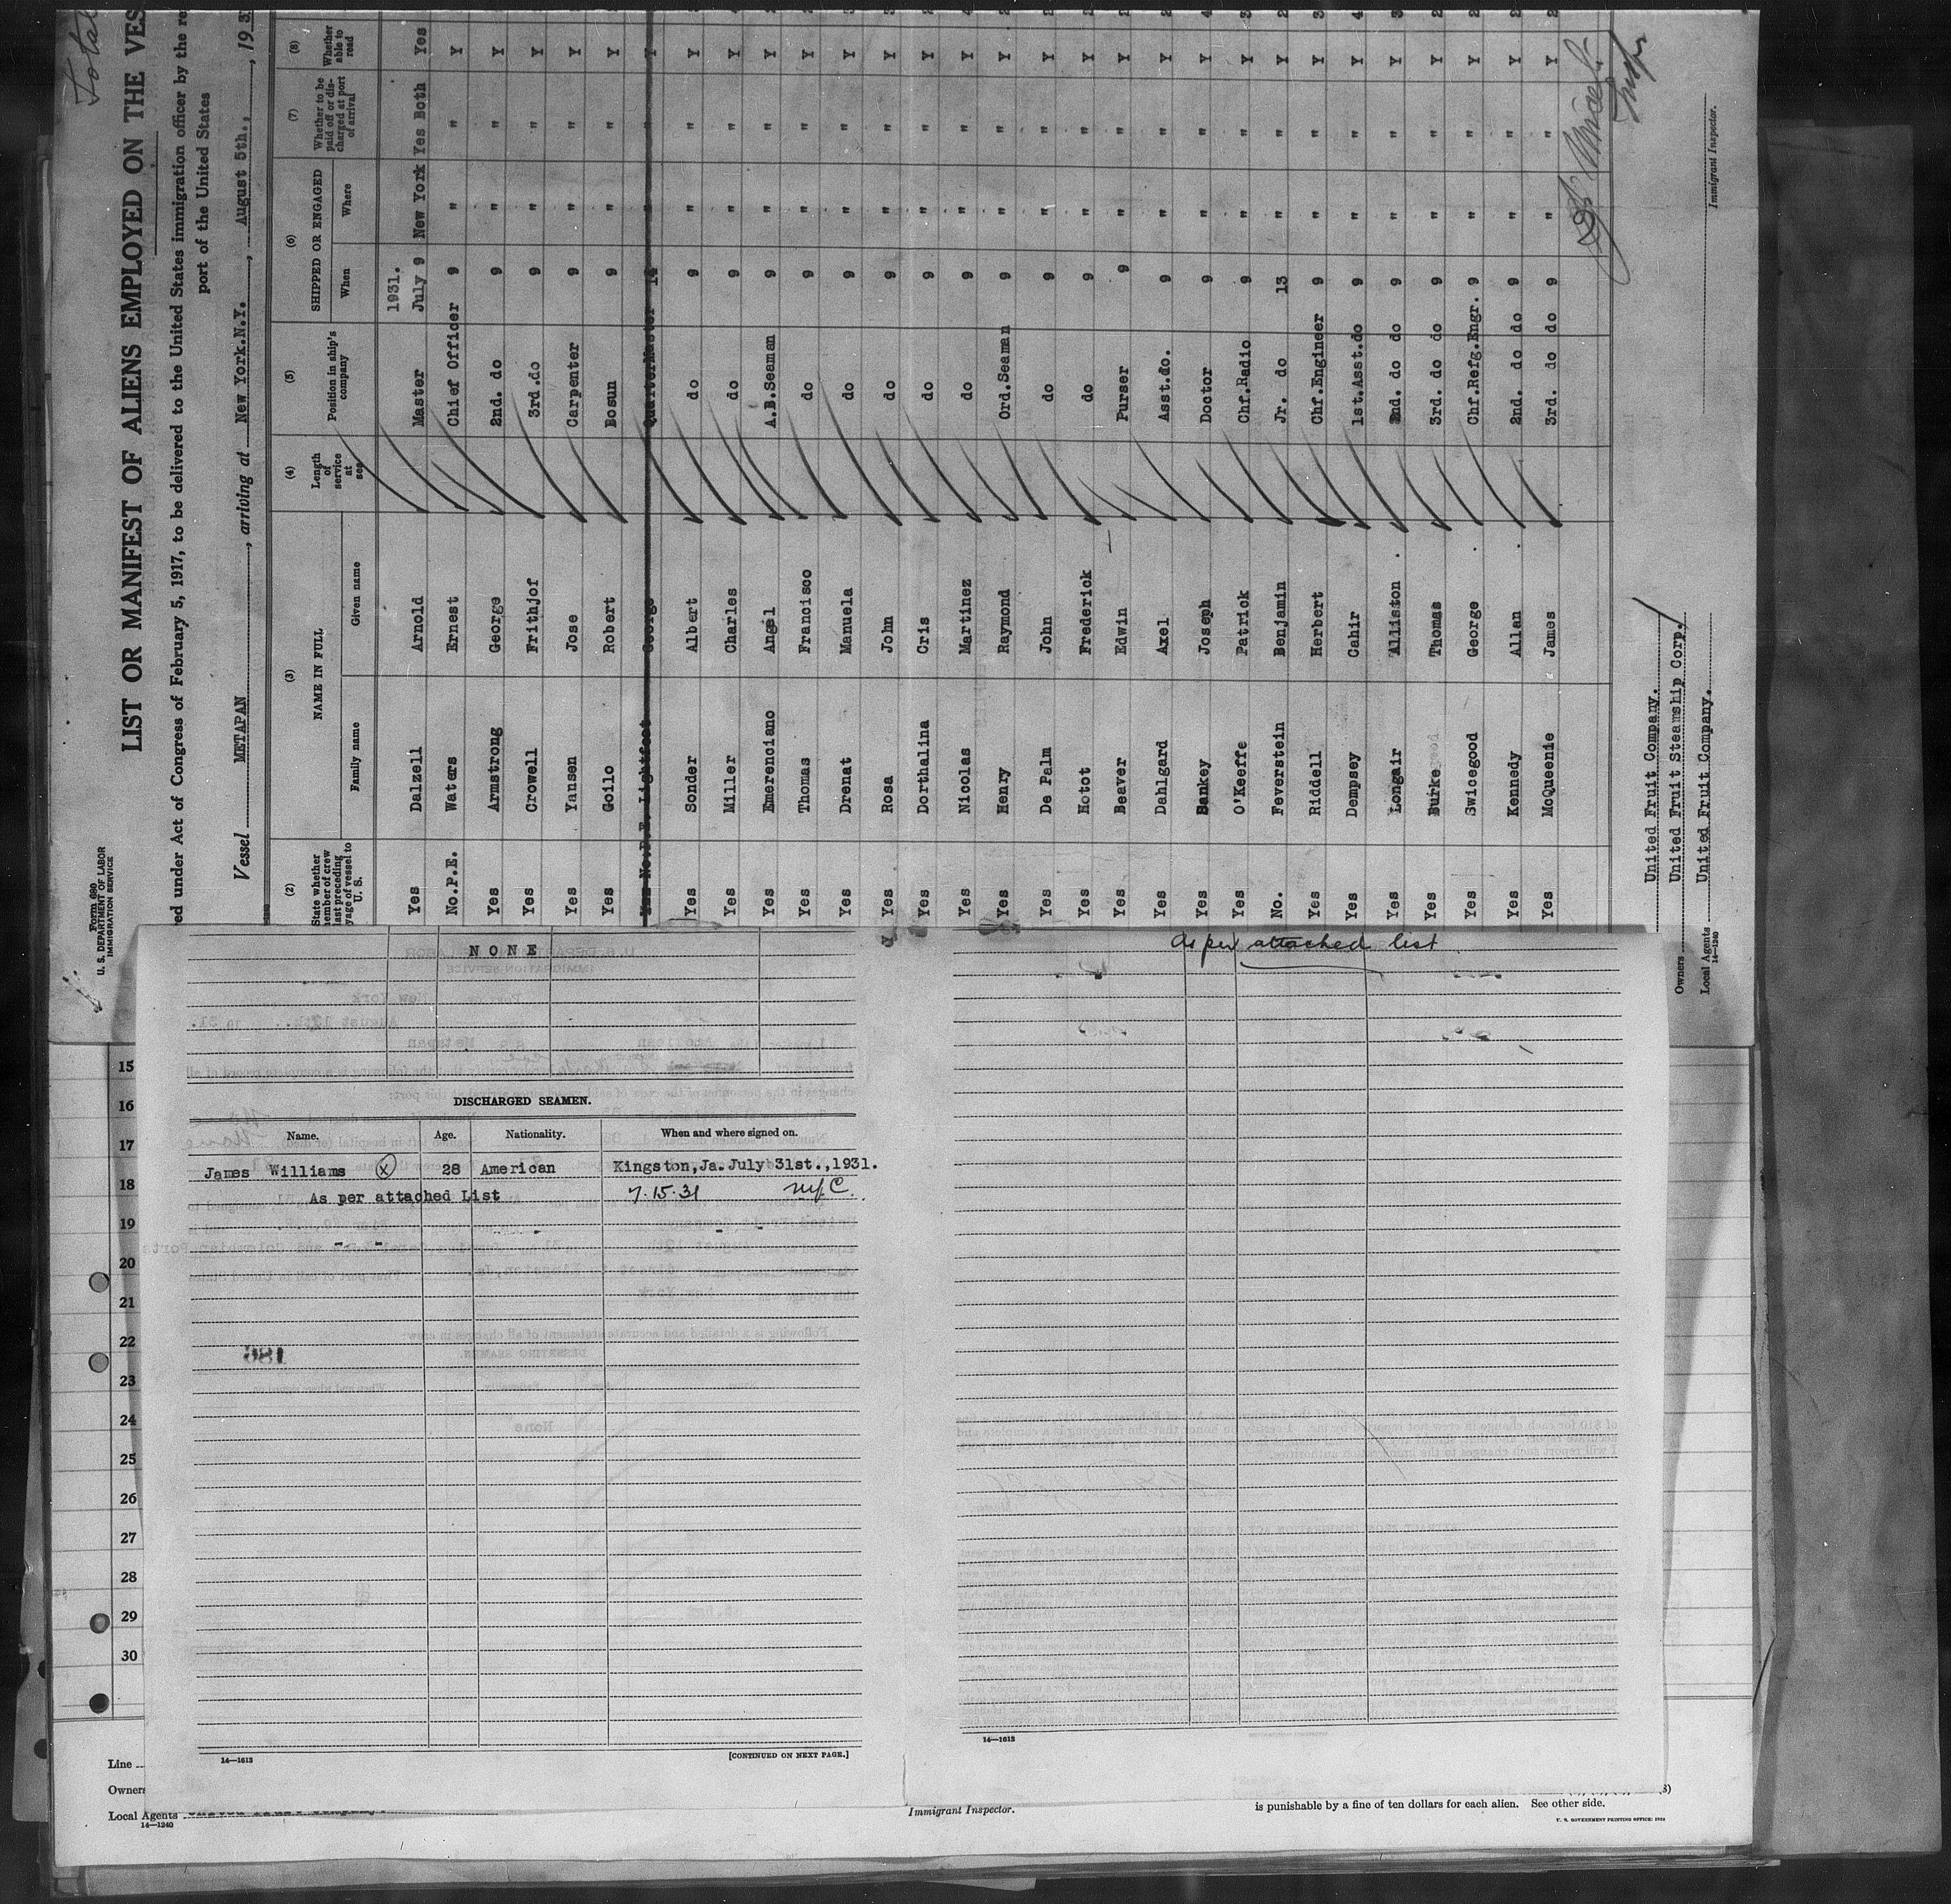 Total
Form 680
U. S. DEPARTMENT OF LABOR
IMMIGRATION SERVICE
LIST OR MANIFEST OF ALIENS EMPLOYED ON THE VES
ed under Act of Congress of February 5, 1917, to be delivered to the United States immigration officer by the re
port of the United States
Vessel METAPAN, arriving at New York.N.Y., August 5th., 193
(2) (3) (4) (5) (6) (7) (8)
State whether member of crew last preceding voyage of vessel to U. S.
NAME IN FULL
Family name Given name
Length of service at sea
Position in ship's company
SHIPPED OR ENGAGED
When Where
Whether to be paid off or discharged at port of arrival
Whether able to read
1931.
Yes Dalzell Arnold Master July 9 New York Yes Both Yes
No.P.E. Waters Ernest Chief Officer 9 " " Y
Yes Armstrong George 2nd. do 9 " " Y
Yes Crowell Frithjof 3rd.do 9 " " Y
Yes Yansen Jose Carpenter 9 " " Y
Yes Goilo Robert Bosun 9 " " Y
No.P.E. Lightfoot George QuarterMaster 14 " " Y
Yes Sonder Albert do 9 " " Y
Yes Miller Charles do 9 " " Y
Yes Emerenciano Angel A.B.Seaman 9 " " Y
Yes Thomas Francisco do 9 " " Y
Yes Drenat Manuela do 9 " " Y
Yes Rosa John do 9 " " Y
Yes Dorthalina Cris do 9 " " Y
Yes Nicolas Martinez do 9 " " Y
Yes Henry Raymond Ord.Seaman 9 " " Y
Yes De Palm John do 9 " " Y
Yes Hotot Frederick do 9 " " Y
Yes Beaver Edwin Purser 9 " " Y
Yes Dahlgard Axel Asst.do. 9 " " Y
Yes Bankey Joseph Doctor 9 " " Y
Yes O'Keeffe Patrick Chf.Radio 9 " " Y
No. Feverstein Benjamin Jr. do 13 " " Y
Yes Riddell Herbert Chf.Engineer 9 " " Y
Yes Dempsey Cahir 1st.Asst.do 9 " " Y
Yes Longair Alliston 2nd. do do 9 " " Y
Yes Burke Thomas 3rd. do do 9 " " Y
Yes Swicegood George Chf.Refg.Engr. 9 " " Y
Yes Kennedy Allan 2nd. do do 9 " " Y
Yes McQueenie James 3rd. do do 9 " " Y
United Fruit Company.
Owners United Fruit Steamship Corp.
Local Agents United Fruit Company.
14—1240
Immigrant Inspector.
NONE
DISCHARGED SEAMEN.
Name. Age. Nationality. When and where signed on.
James Williams (X) 28 American Kingston,Ja.July 31st.,1931.
As per attached List 7.15.31 NYC.
14—1613
[CONTINUED ON NEXT PAGE.]
As per attached list
14—1613
15
16
17
18
19
20
21
22
23
24
25
26
27
28
29
30
Line
Owners
Local Agents
14—1240
Immigrant Inspector.
is punishable by a fine of ten dollars for each alien. See other side.
U. S. GOVERNMENT PRINTING OFFICE